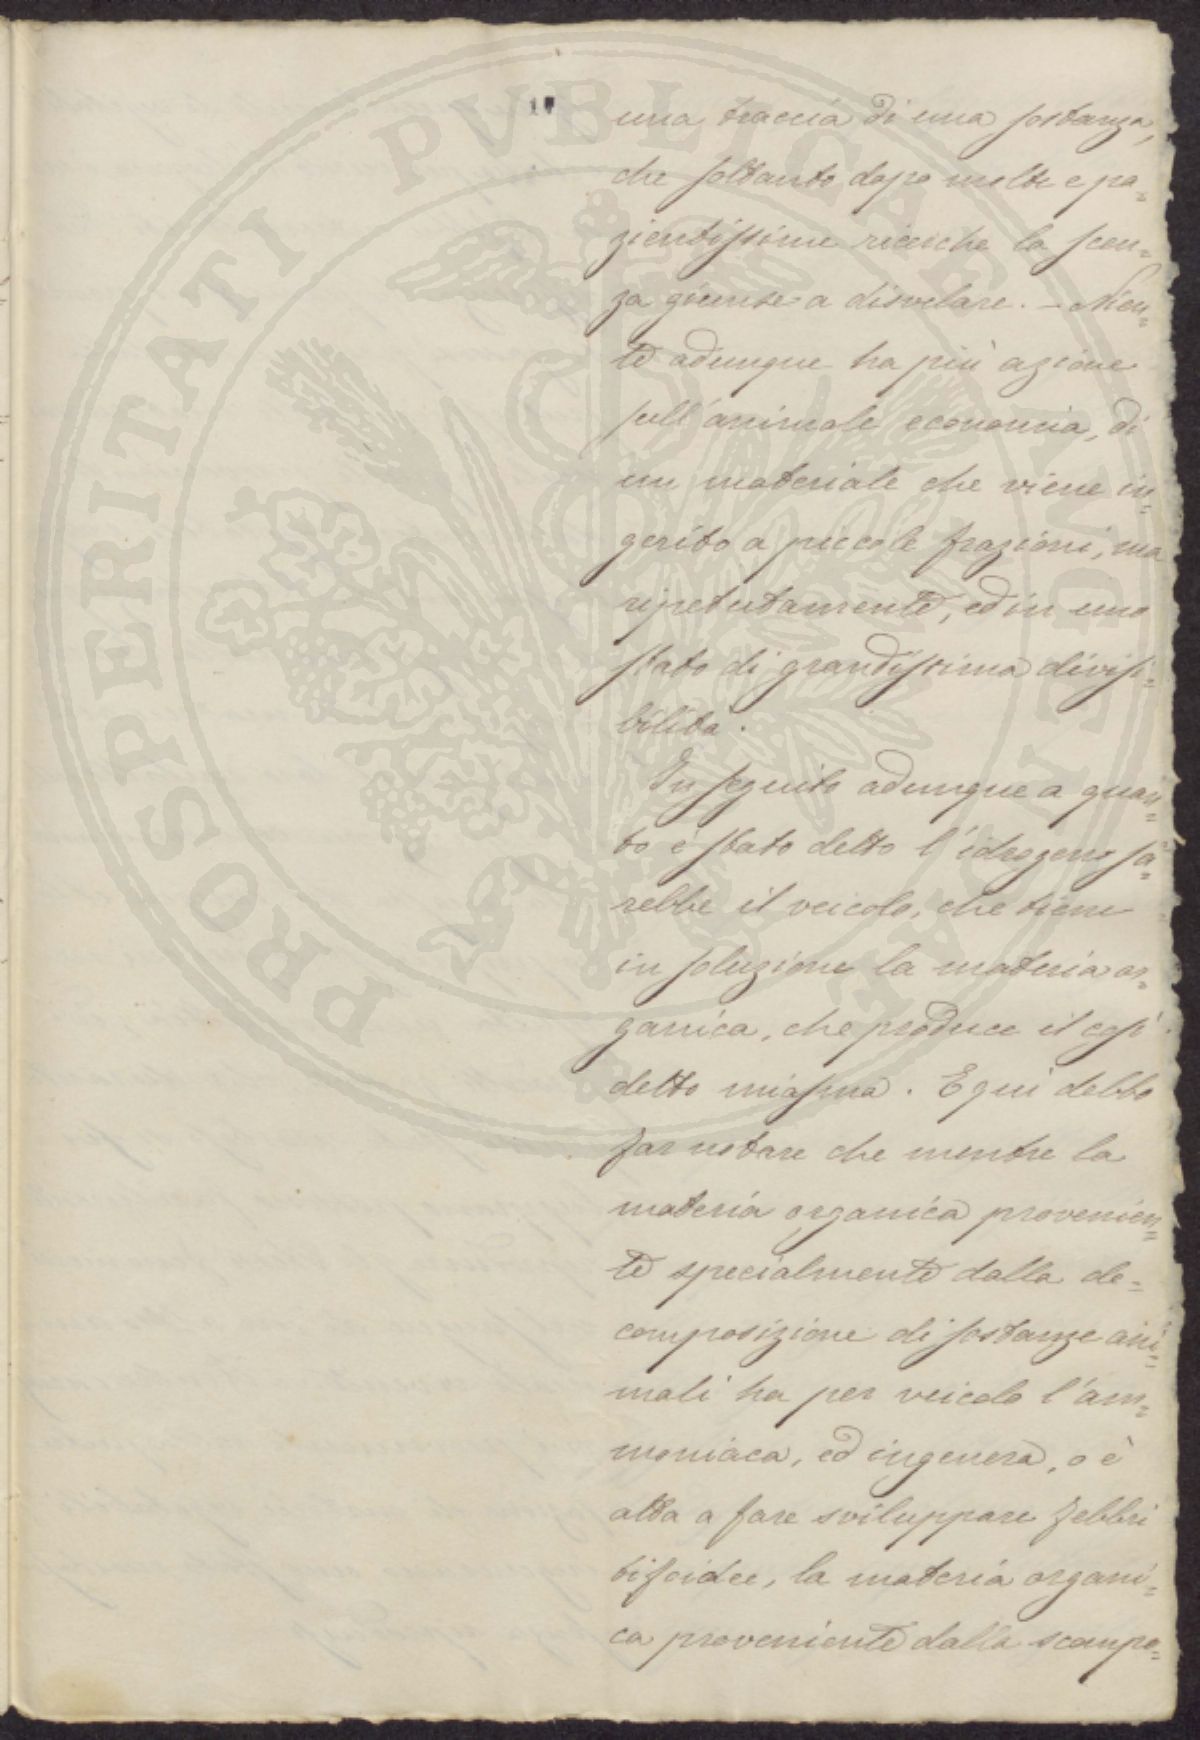 PROSPERITATI PVBLICAE AVGENDAE
17
una traccia di una sostanza,
che soltanto dopo molte e pa=
zientissime ricerche la scien=
za giunse a disvelare. – Nien=
te adunque ha più azione
sull'animale economia, di
un materiale che viene in=
gerito a piccole frazioni, ma
ripetutamente, ed in uno
stato di grandissima divisi=
bilità.
In seguito adunque a quan=
to è stato detto l'idrogeno sa=
rebbe il veicolo, che tiene
in soluzione la materia or=
ganica, che produce il così
detto miasma. E qui debbo
far notare che mentre la
materia organica provenien=
te specialmente dalla de=
composizione di sostanze ani=
mali ha per veicolo l'am=
moniaca, ed ingenera, o è
atta a fare sviluppare febbri
tifoidee, la materia organi=
ca proveniente dalla scompo=